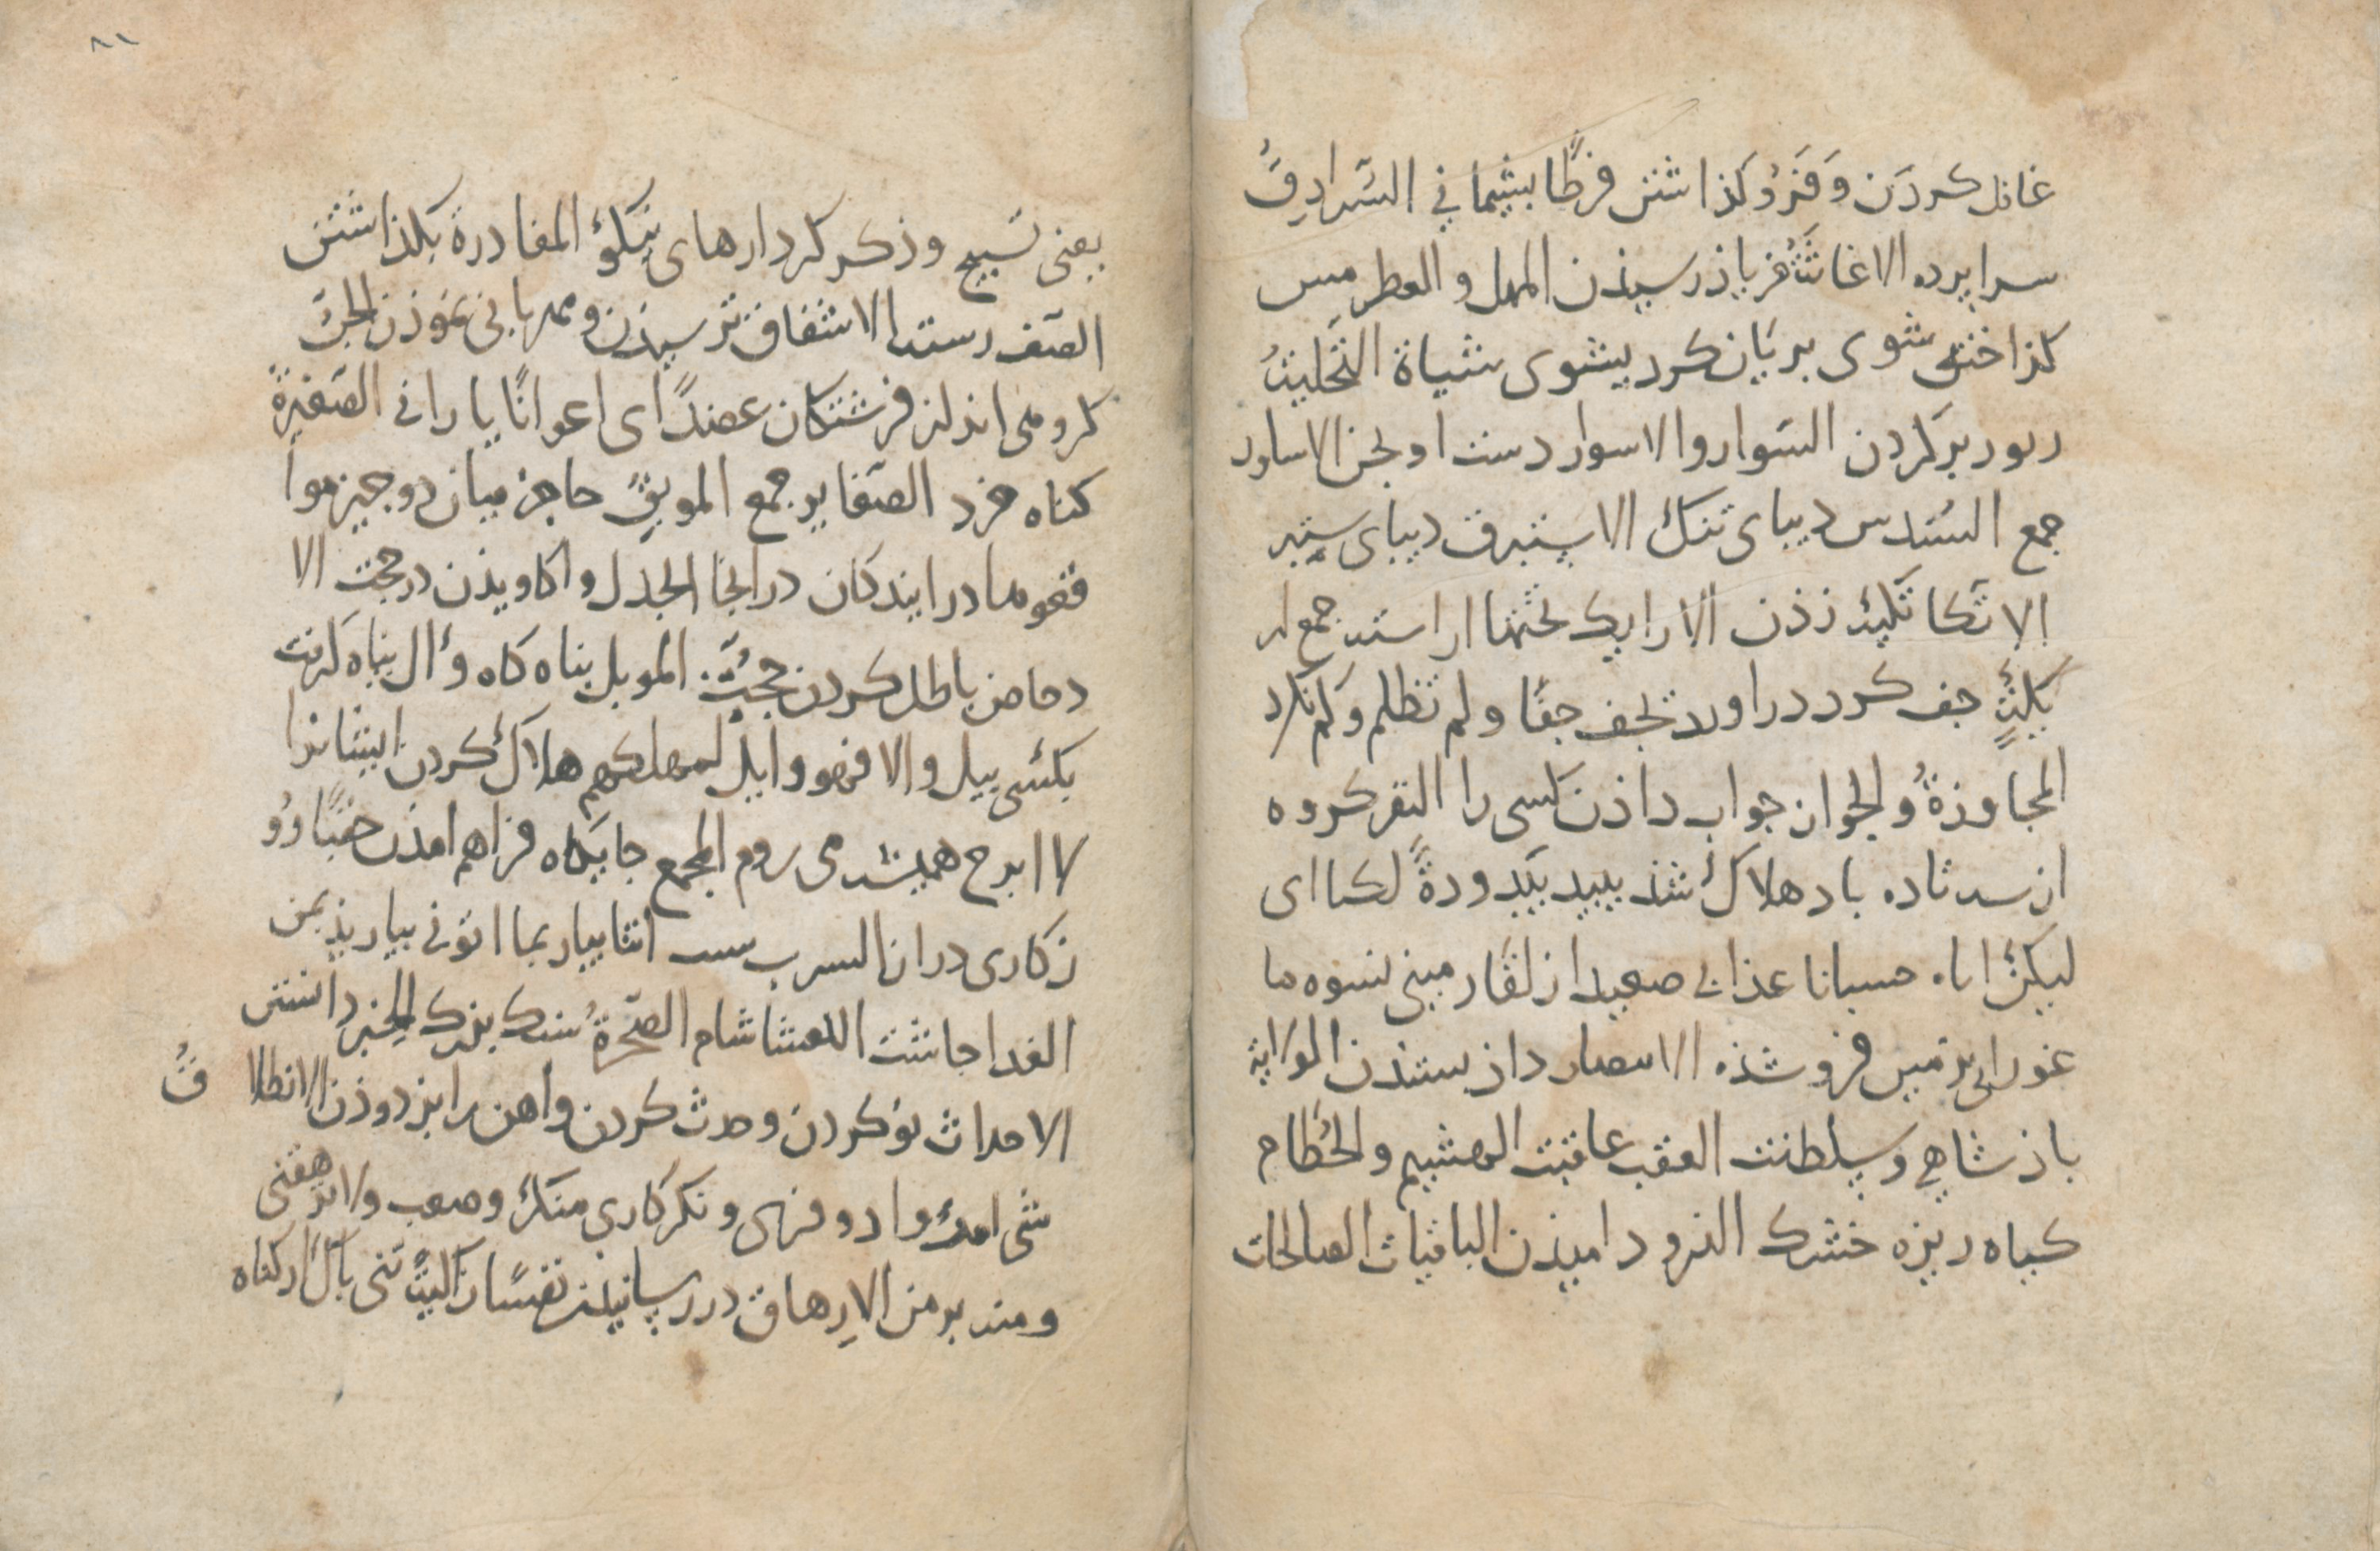 غافل کردن وَ فَرُو کذاشتن فرطًا بشیمانی السَّرادِقُ
سرابرده الاغاثَةُ فریاذ رسیذن المهل و القطر مس
کذاخته شوی بریَان کرد یشوی شیاة التَّحلیَةُ
زیور بر کردن السّوار والاسوار دست اورنجن الاساور
جمع السُندس دیبای تنک الاستبرق دیبای ستبر
الاتّکا تکیه زذن الارایک تختها اراسته جمع ار
یکةٍ حف کرد دراورد تحف حفًا ولم تظلم وَلم نکاد
المجاوزةُ والجواز جواب داذن کسی را النفر کروه
از سه تا ده باد هلاک شذ یبید بَیدودةً لکنا ای
لیکن انا حسبانا عذابی صعیدا زلقًا زمینی نسوه ما
غورا ابی بزمین فروشذه الانتصار داذ ستدن الولایة
باذشاهی وسلطنت العقب عاقبت الهشیم والحُطام
کیاه ریزه خشک الذرو دامیذن الباقیات الصالحات
یعنی تسبیح وذکر کردارهای نیکو المغادرة بکذاشتن
الصّف رسته الاشفاق ترسیذن ومهربانی نموذن الجنّ
کروهی اند از فرشتکان عضدًا ای اعوانًا یارانی الصّغیرةُ
کناه خرد الصّغایر جمع الموبِق حاجز میان دو جیز موا
قعوها درایندکان درانجا الجدل واکاویذن در حجت الا
دحاض باطل کردن حجّت الموئل بناه کاه وأل بناه کرفت
یئل والا فهو وایل لمهلکهم هلاک کردن ایشانرا
لا ابرح همیشه می روم المجمع جایکاه فراهم امذن حقبًا
زکاری دراز السرب اتنا بیار بما اتونی بیاریذ بمن
الغدا جاشت العشا شام الصّخرةُ سنک بزرک الخبر دانستن
الاحداث نو کردن وحدث کردن واهن را بزدوذن الانطلاقُ
شی امرا وادو فزی ونکر کاری منکر وصعب ولا ترهقنی
ومنه بر من الارهاق در رسانیذن نفسًا زاکیةً تنی باک از کناه